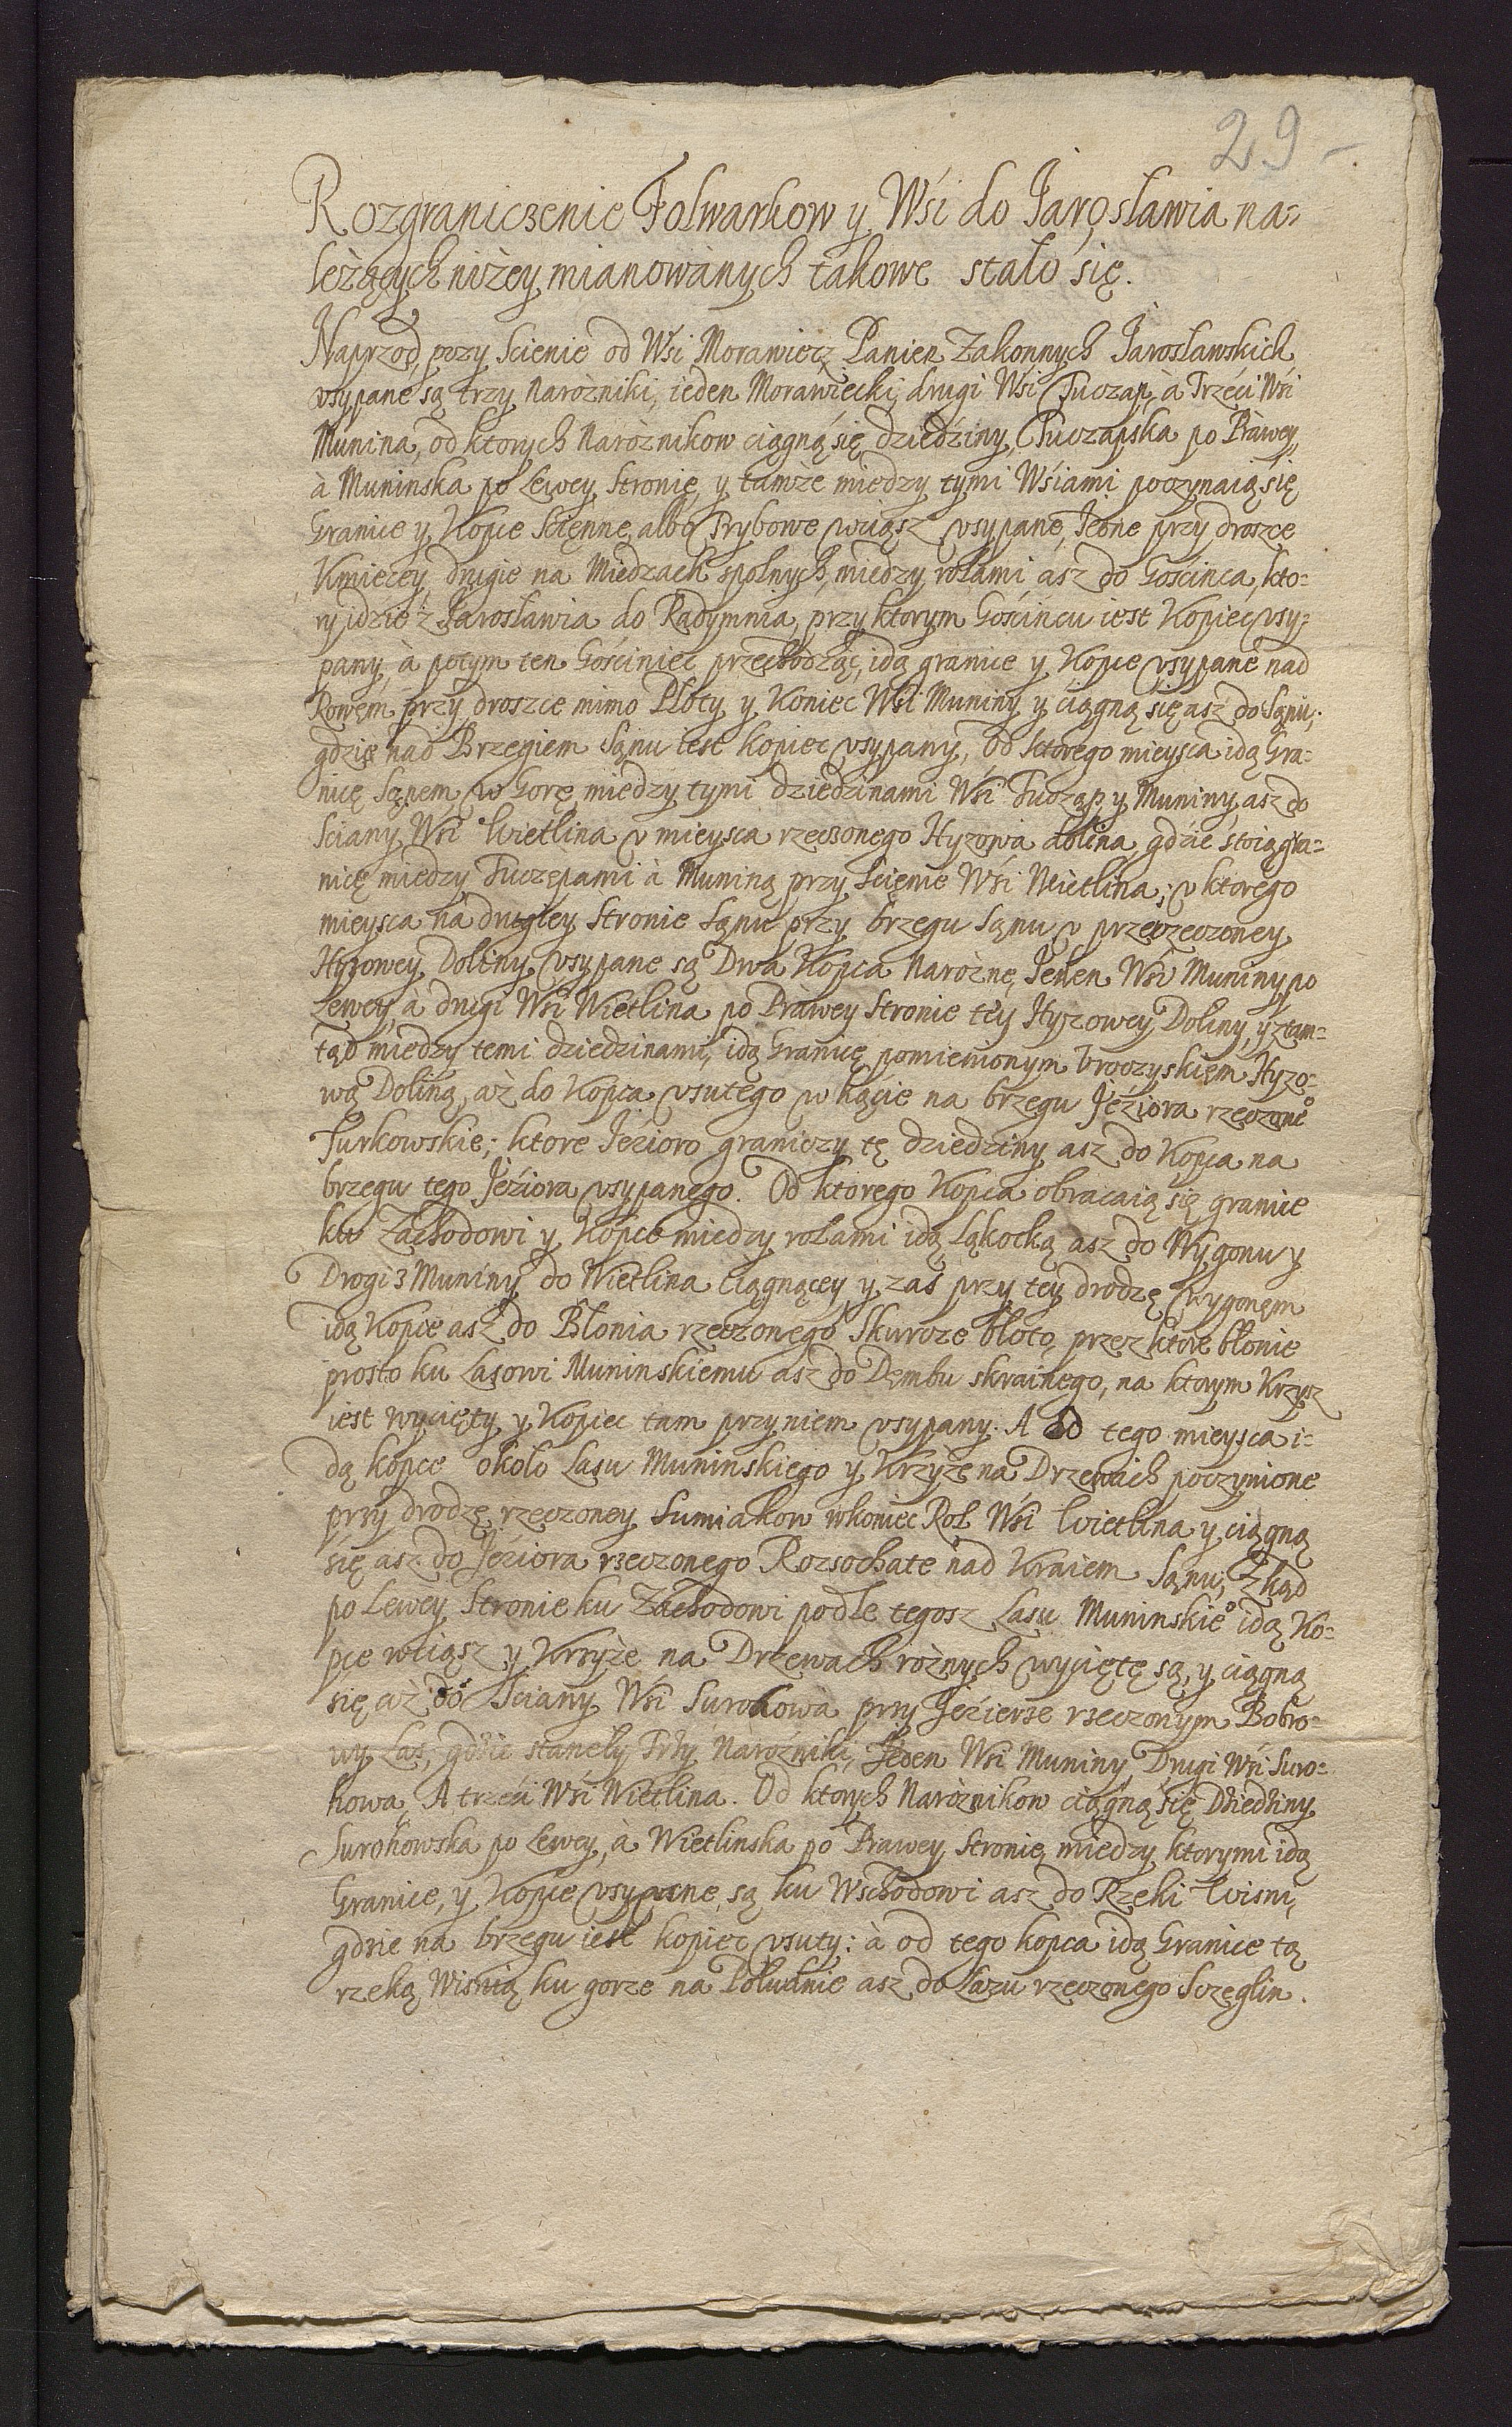 29 -
Rozgraniczenie Folwarkow y Wśi do Jarosławia na-
leżących niżey mianowanych takowe stało się.
Naprzod, przy Scienie od Wśi Morawiec, Panien Zakonnych Jarosławskich
vsypane są trzy Narożniki, ieden Morawiecki, drugi Wśi Tuczap, à Trzeci Wśi
Munina, od ktorych Narożnikow ciągną się dziedziny, Tuczapska po Prawey,
à Muninska po Lewey Stronie, y tamże miedzy tymi Wśiami poczynaią się
Granice y Kopce Scienne, albo Trybowe wciąsz vsypane, Jedne przy droszce
Kmiecey, drugie na Miedzach społnych, miedzy rolami, asz do Goscinca, kto-
ry idzie z Jarosławia do Radymnia, przy ktorym Gościncu iest Kopiec vsy-
pany, à potym ten Gościniec przechodząc, idą granice y Kopce vsypane nad
Rowem przy droszce mimo Płoty y Koniec Wśi Muniny y ciągną się asz do Sanu,
gdzie nad Brzegiem Sanu iest kopiec vsypany, Od ktorego mieysca idą Gra-
nice Sanem w Gorę miedzy tymi dziedzinami Wśi Tuczap y Muniny, asz do
Sciany Wśi Wietlina v mieysca rzeczonego Hyzowa dolina, gdzie stoią gra-
nice miedzy Tuczępami à Muniną przy Scienie Wśi Wietlina; v ktorego
mieysca na drugiey Stronie Sanu przy brzegu Sanu v przerzeczoney
Hyzowey Doliny vsypane są Dwa Kopca Narożne, Jeden Wśi Muniny po
Lewey, à drugi Wśi Wietlina po Prawey Stronie tey Hyzowey Doliny, y ztam-
tąd miedzy temi dziedzinami, idą Granice pomienionym Vroczyskiem Hyzo-
wą Doliną, aż do Kopca vsutego w kącie na brzegu Jeźiora rzeczone°
Turkowskie; ktore Jezioro graniczy te dziedziny asz do Kopca na
brzegu tego Jeźiora vsypanego. Od ktorego Kopca obracaią się granice
ku Zachodowi y Kopce miedzy rolami idą Łąkocką asz do Wygonu y
Drogi z Muniny do Wietlina ciągnącey y zas przy tey drodze wygonem
idą Kopce asz do Błonia rzeczonego Skurcze błoto, przez ktore błonie
prosto ku Lasowi Muninskiemu asz do Dembu skrainego, na ktorym Krzysz
iest wycięty y Kopiec tam przy niem vsypany. A od tego mieysca i-
dą kopce około Lasu Muninskiego y Krzyże na Drzewach poczynione
przy drodze rzeczoney Sumiakow wkoniec Rol Wśi Wietlina y ciągną
się asz do Jeziora rzeczonego Rozsochate nad Kraiem Sanu, Zkąd
po Lewey Stronie ku Zachodowi podle tegosz Lasu Muninskie° idą Ko-
pce wciąsz y Krzyże na Drzewach rożnych wycięte są, y ciągną
się aż do Sciany Wśi Surochowa przy Jezierze rzeczonym Bobro-
wy Las, gdzie stanęły Trzy Narożniki, Jeden Wśi Muniny Drugi Wśi Suro-
howa, A trzeci Wśi Wietlina. Od ktorych Narożnikow ciągną się Dziedziny
Surohowska po Lewey, à Wietlinska po Prawey Stronie, miedzy ktorymi idą
Granice, y Kopce vsypane są ku Wschodowi asz do Rzeki Wisni,
gdzie na brzegu iest kopiec vsuty: à od tego kopca idą Granice tą
rzeką Wisnią ku gorze na Południe asz do Łazu rzeczonego Sczeglin.